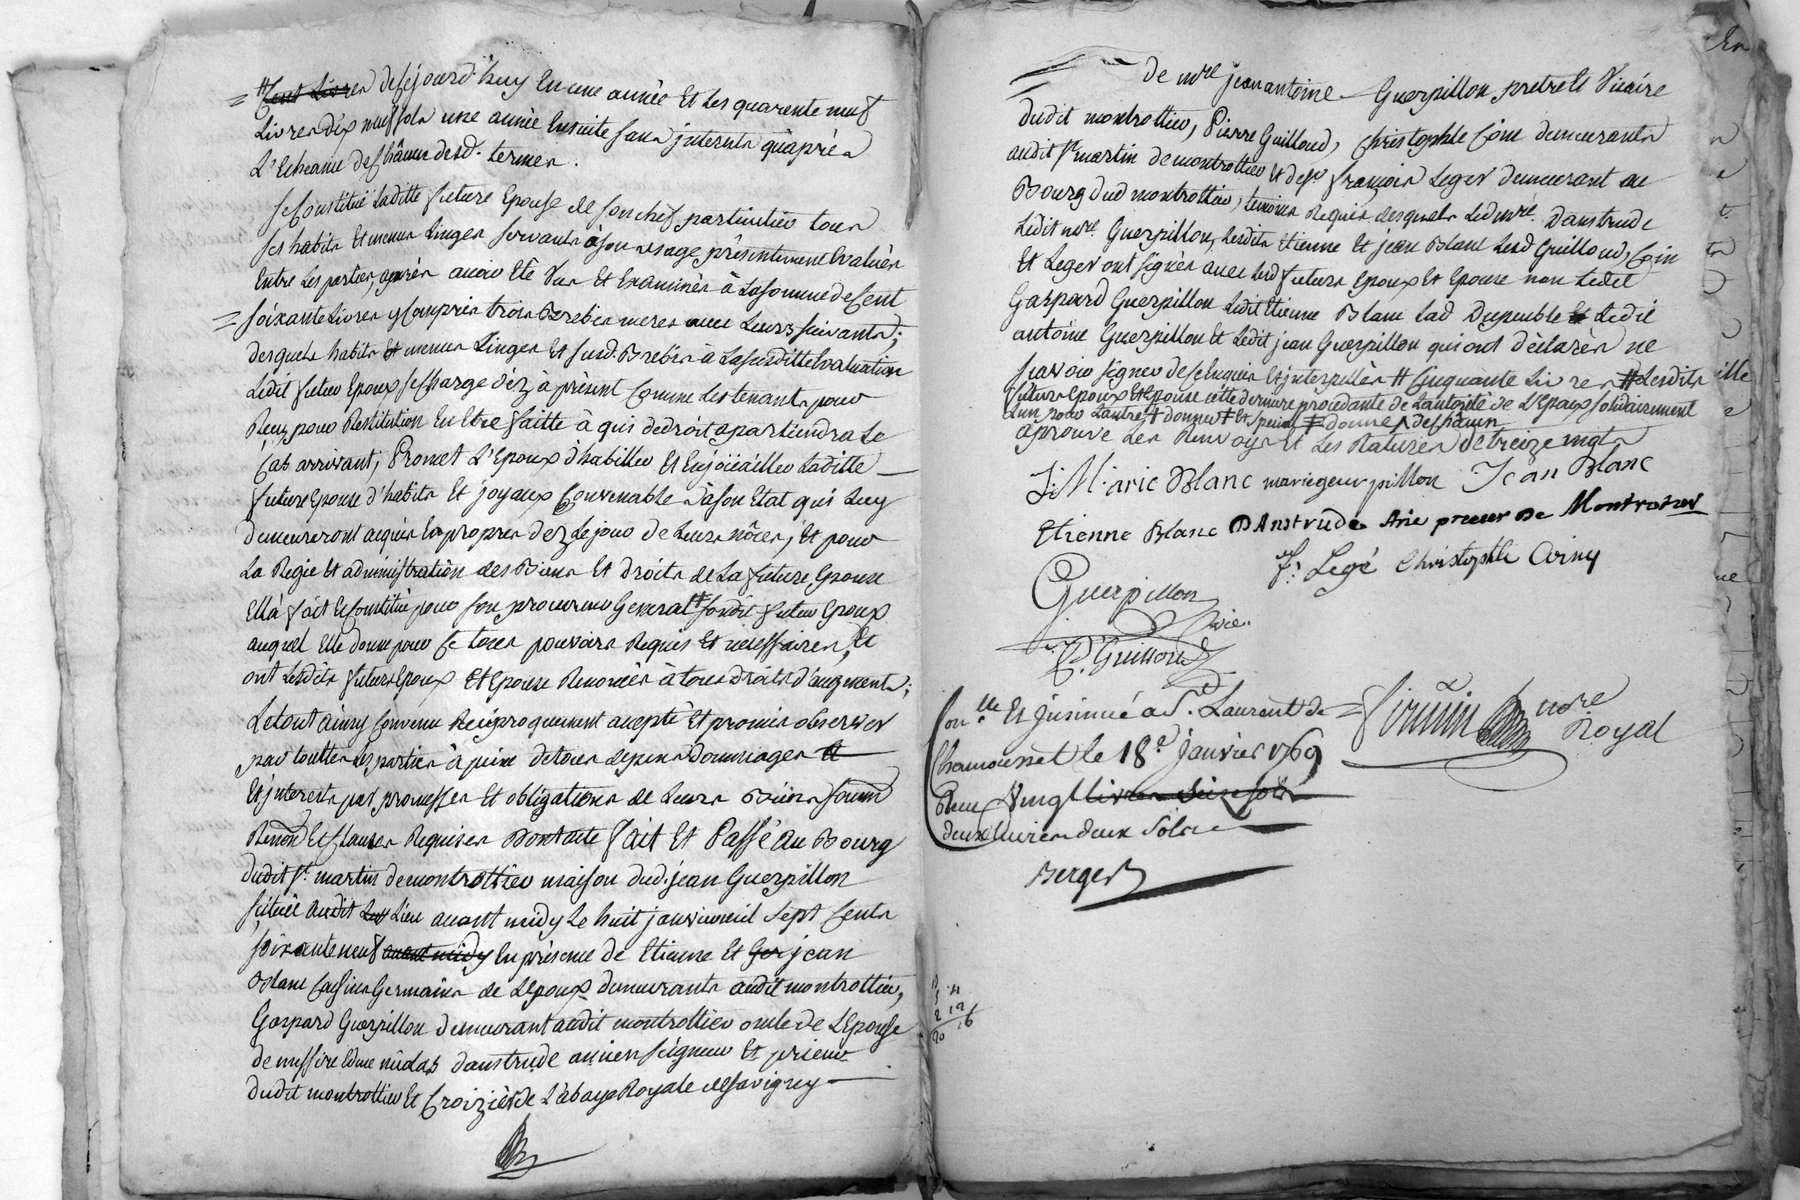 # Cent Livres desejourd'huy En une année Et Les quarente neuf
Livres dix neuf sols une année Ensuite sans jnterets qu'aprés
L'Echeance de chãcun desd. termes.
se Constitüe Laditte future Epouse de son chef particulier tous
ses habits Et menus Linges servants àson usage, présentement Evalués
Entre Les parties, aprés avoir Eté Vus Et Examinés à Lasomme deCent
soixante Livres y Compris trois Brebies meres avec Leurs suivants;
desquels habits Et menus Linges Et susd. Brebis à Lasusditte Evaluation
Ledit futur Epoux se Charge déz à présent Comme Les tenants pour
Reçus, pour Restitution En Etre faitte à qui dedroit apartiendra Le
Cas arrivant; Promet L'Epoux d'habiller Et Enjoüailler Laditte
future Epouse d'habits Et joyaux Convenable àson Etat qui Luy
demeureront acquis En propres déz Le jour de Leurs nôces; Et pour
La Regie Et administration des Biens Et droits de La future Epouse
Ella fait Et Constitüé pour son procureur General # sondit futur Epoux
auquel Elle donne pour Ce tous pouvoirs Requis Et necessaires, Et
ont Lesdits futurs Epoux Et Epouse Renoncés à tous droits d'augments;
Letout ainsy Convenu Reciproquement accepté Et promis observer
par touttes Les parties à peine detous depens Dommages Et
Et jnterests par promesses Et obligations de Leurs Biens soum
Renon Et Clauses Requises Dont acte fait Et Passé Au Bourg
dudit St. martin demontrottier maison dud. jean Guerpillon
située audit Lus Lieu avant midy Le huit janvier mil sept Cents
soixante neuf avant midy En présence de Etienne Et Ger jean
Blanc Cousins Germains de L'Epoux demeurants audit montrottier,
Gaspard Guerpillon demeurant audit montrottier oncle de L'Epouse
de messire Edme nicolas danstrude ancien seigneur Et prieur
dudit montrottier Et Croizier de L'abaye Royale de Savigny
de mre jean antoine Guerpillon pretre Et Vicaire
dudit montrottier, Pierre Guilloud, Christophle Coin demeurants
audit St martin de montrottier Et de sr françois Leger demeurant au
Bourg dud montrottier, temoins Requis desquels Led mre. Danstrude
Ledit mre. Guerpillon, Lesdits Etienne Et jean Blanc Lesd Guilloud, Coin
Et Leger ont signés avec Lesd futurs Epoux Et Epouse non Ledit
Gaspard Guerpillon Ledit Etienne Blanc Lad Dupeuble Et Ledit
antoine Guerpillon Et Ledit jean Guerpillon qui ont déclarés ne
scavoir signer de ce Enquis Et jnterpellés # Cinquante Livres # Lesdits
futurs Epoux Et Epouse cette derniere procedante de Lautorité de L'Epoux solidairement
Lun pour Lautre # donner # Et special # donne / de chãcun
aprouvé Les Renvoys Et Les Ratures de treize mots
J: M. arie Blanc marie guerpillon Jean Blanc
Etienne Blanc DAnstrude Anc prieur De Montrotier
fs Legé Christophle Coiny
Guerpillon
Vic.
P. Guilloud
Con.lle Et Jnsinué à St. Laurent de
Chamousset le 18e janvier 1769
Reçu Vingt livres seize sols
deux livres deux sols
Berger
nore
Royal